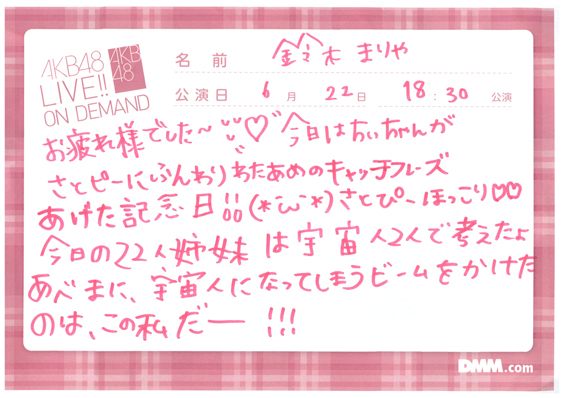 AKB48
LIVE!!
ON DEMAND
AKB
48
名前 鈴木まりや
公演日 6月 22日 18:30 公演
お疲れ様でした~ ♡ 今日はちぃちゃんが
さとピーにふんわりわたあめのキャッチフレーズ
あげた記念日!!(*´ω`*)さとぴーほっこり♡♡
今日の22人姉妹は宇宙人2人で考えたよ
あべまに、宇宙人になってしまうビームをかけた
のは、この私だー!!!
DMM.com